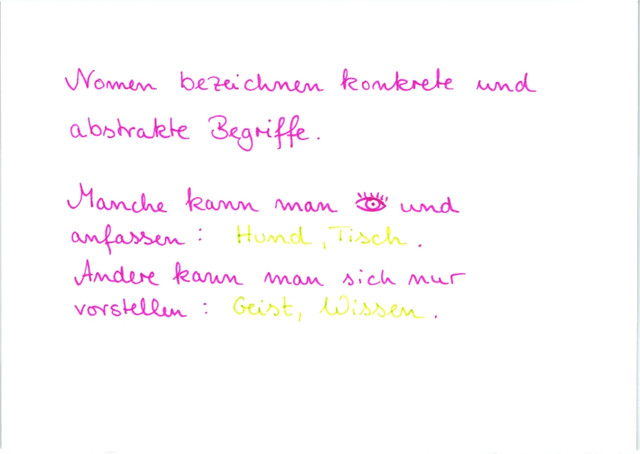 Nomen bezeichnen konkrete und
abstrakte Begriffe.
Manche kann man 👁 und
anfassen : Hund, Tisch.
Andere kann man sich nur
vorstellen : Geist, Wissen.